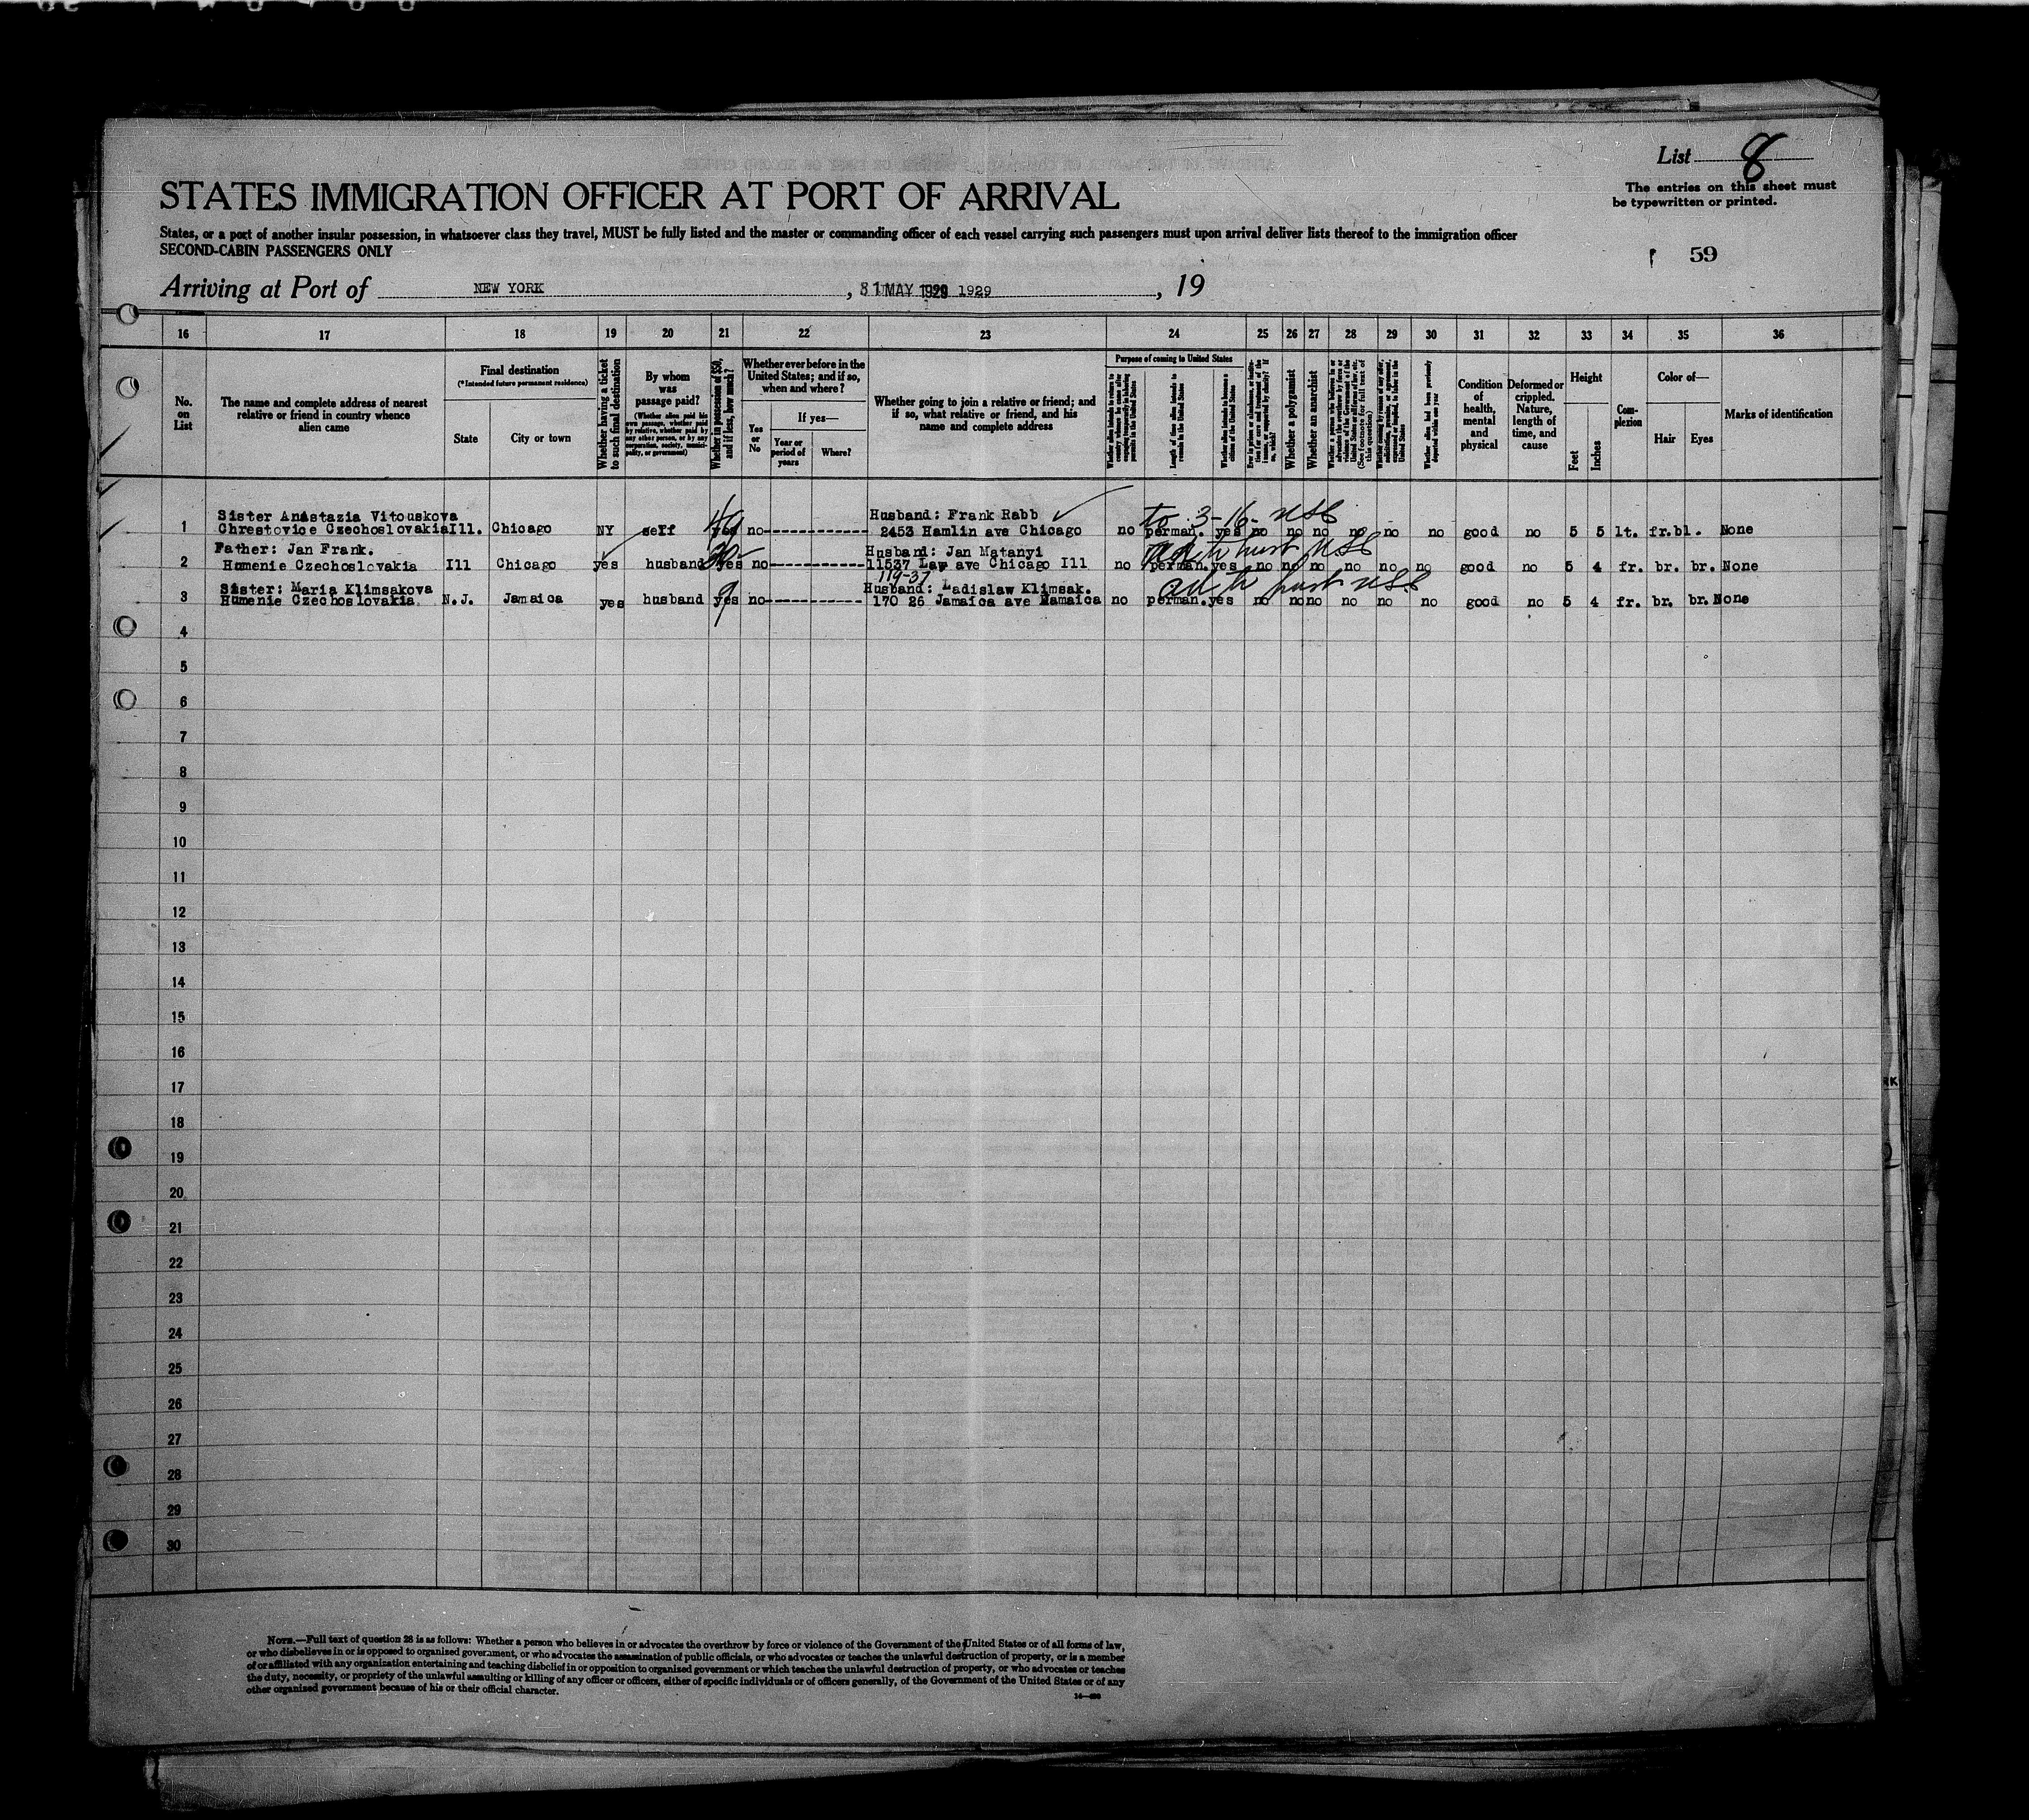 List 8
The entries on this sheet must
be typewritten or printed.
STATES IMMIGRATION OFFICER AT PORT OF ARRIVAL
States, or a port of another insular possession, in whatsoever class they travel, MUST be fully listed and the master or commanding officer of each vessel carrying such passengers must upon arrival deliver lists thereof to the immigration officer
SECOND-CABIN PASSENGERS ONLY
59
Arriving at Port of NEW YORK , MAY 1929 , 19
16 17 18 19 20 21 22 23 24 25 26 27 28 29 30 31 32 33 34 35 36
No.
on
List
The name and complete address of nearest
relative or friend in country whence
alien came
Final destination
(*Intended future permanent residence)
State
City or town
Whether having a ticket
to such final destination
By whom
was
passage paid?
(Whether alien paid his
own passage, whether paid
by relative, whether paid by
any other person, or by any
corporation, society, munici-
pality, or government)
Whether in possession of $50,
and if less, how much?
Whether ever before in the
United States; and if so,
when and where?
Yes
or
No
If yes—
Year or
period of
years
Where?
Whether going to join a relative or friend; and
if so, what relative or friend, and his
name and complete address
Purpose of coming to United States
Length of time alien intends to
remain in the United States
Whether alien intends to become a
citizen of the United States
Whether a polygamist
Whether an anarchist
Whether alien had been previously
deported within one year
Condition
of
health,
mental
and
physical
Deformed or
crippled.
Nature,
length of
time, and
cause
Height
Feet
Inches
Com-
plexion
Color of—
Hair
Eyes
Marks of identification
Sister Anastazia Vitouskova Husband: Frank Rabb to 3-16-
1 Chrestovice Czechoslovakia Ill. Chicago NY self yes no 2453 Hamlin ave Chicago no perman. yes no no no no no no good no 5 5 lt. fr. bl. None
Father: Jan Frank. Husband: Jan Matanyi
2 Humenie Czechoslovakia Ill Chicago yes husband yes no 11537 Law ave Chicago Ill no perman. yes no no no no no no good no 5 4 fr. br. br. None
119-37
Sister: Maria Klimsakova Husband: Ladislaw Klimsak.
3 Humenie Czechoslovakia N.J. Jamaica yes husband yes no 170 26 Jamaica ave Namaica no perman. yes no no no no no no good no 5 4 fr. br. br. None
4
5
6
7
8
9
10
11
12
13
14
15
16
17
18
19
20
21
22
23
24
25
26
27
28
29
30
NOTE.—Full text of question 28 is as follows: Whether a person who believes in or advocates the overthrow by force or violence of the Government of the United States or of all forms of law,
or who disbelieves in or is opposed to organized government, or who advocates the assassination of public officials, or who advocates or teaches the unlawful destruction of property, or is a member
of or affiliated with any organization entertaining and teaching disbelief in or opposition to organized government or which teaches the unlawful destruction of property, or who advocates or teaches
the duty, necessity, or propriety of the unlawful assaulting or killing of any officer or officers, either of specific individuals or of officers generally, of the Government of the United States or of any
other organized government because of his or their official character.